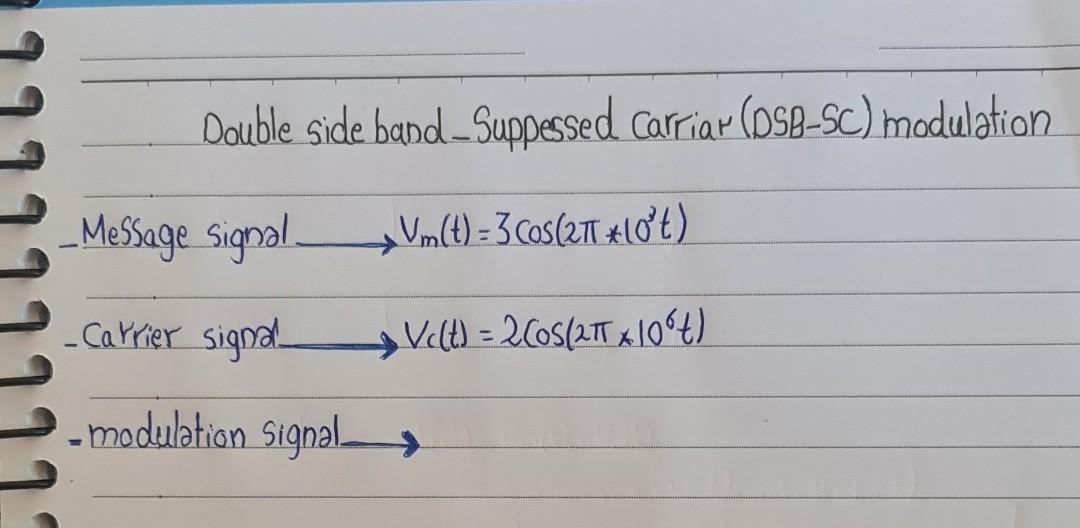 Double side band_Suppessed Carriar (DSB-SC) modulation
_Message signal → Vm(t) = 3 Cos(2π *10³t)
_Carrier signal → Vc(t) = 2Cos(2π *10⁶t)
-modulation signal →